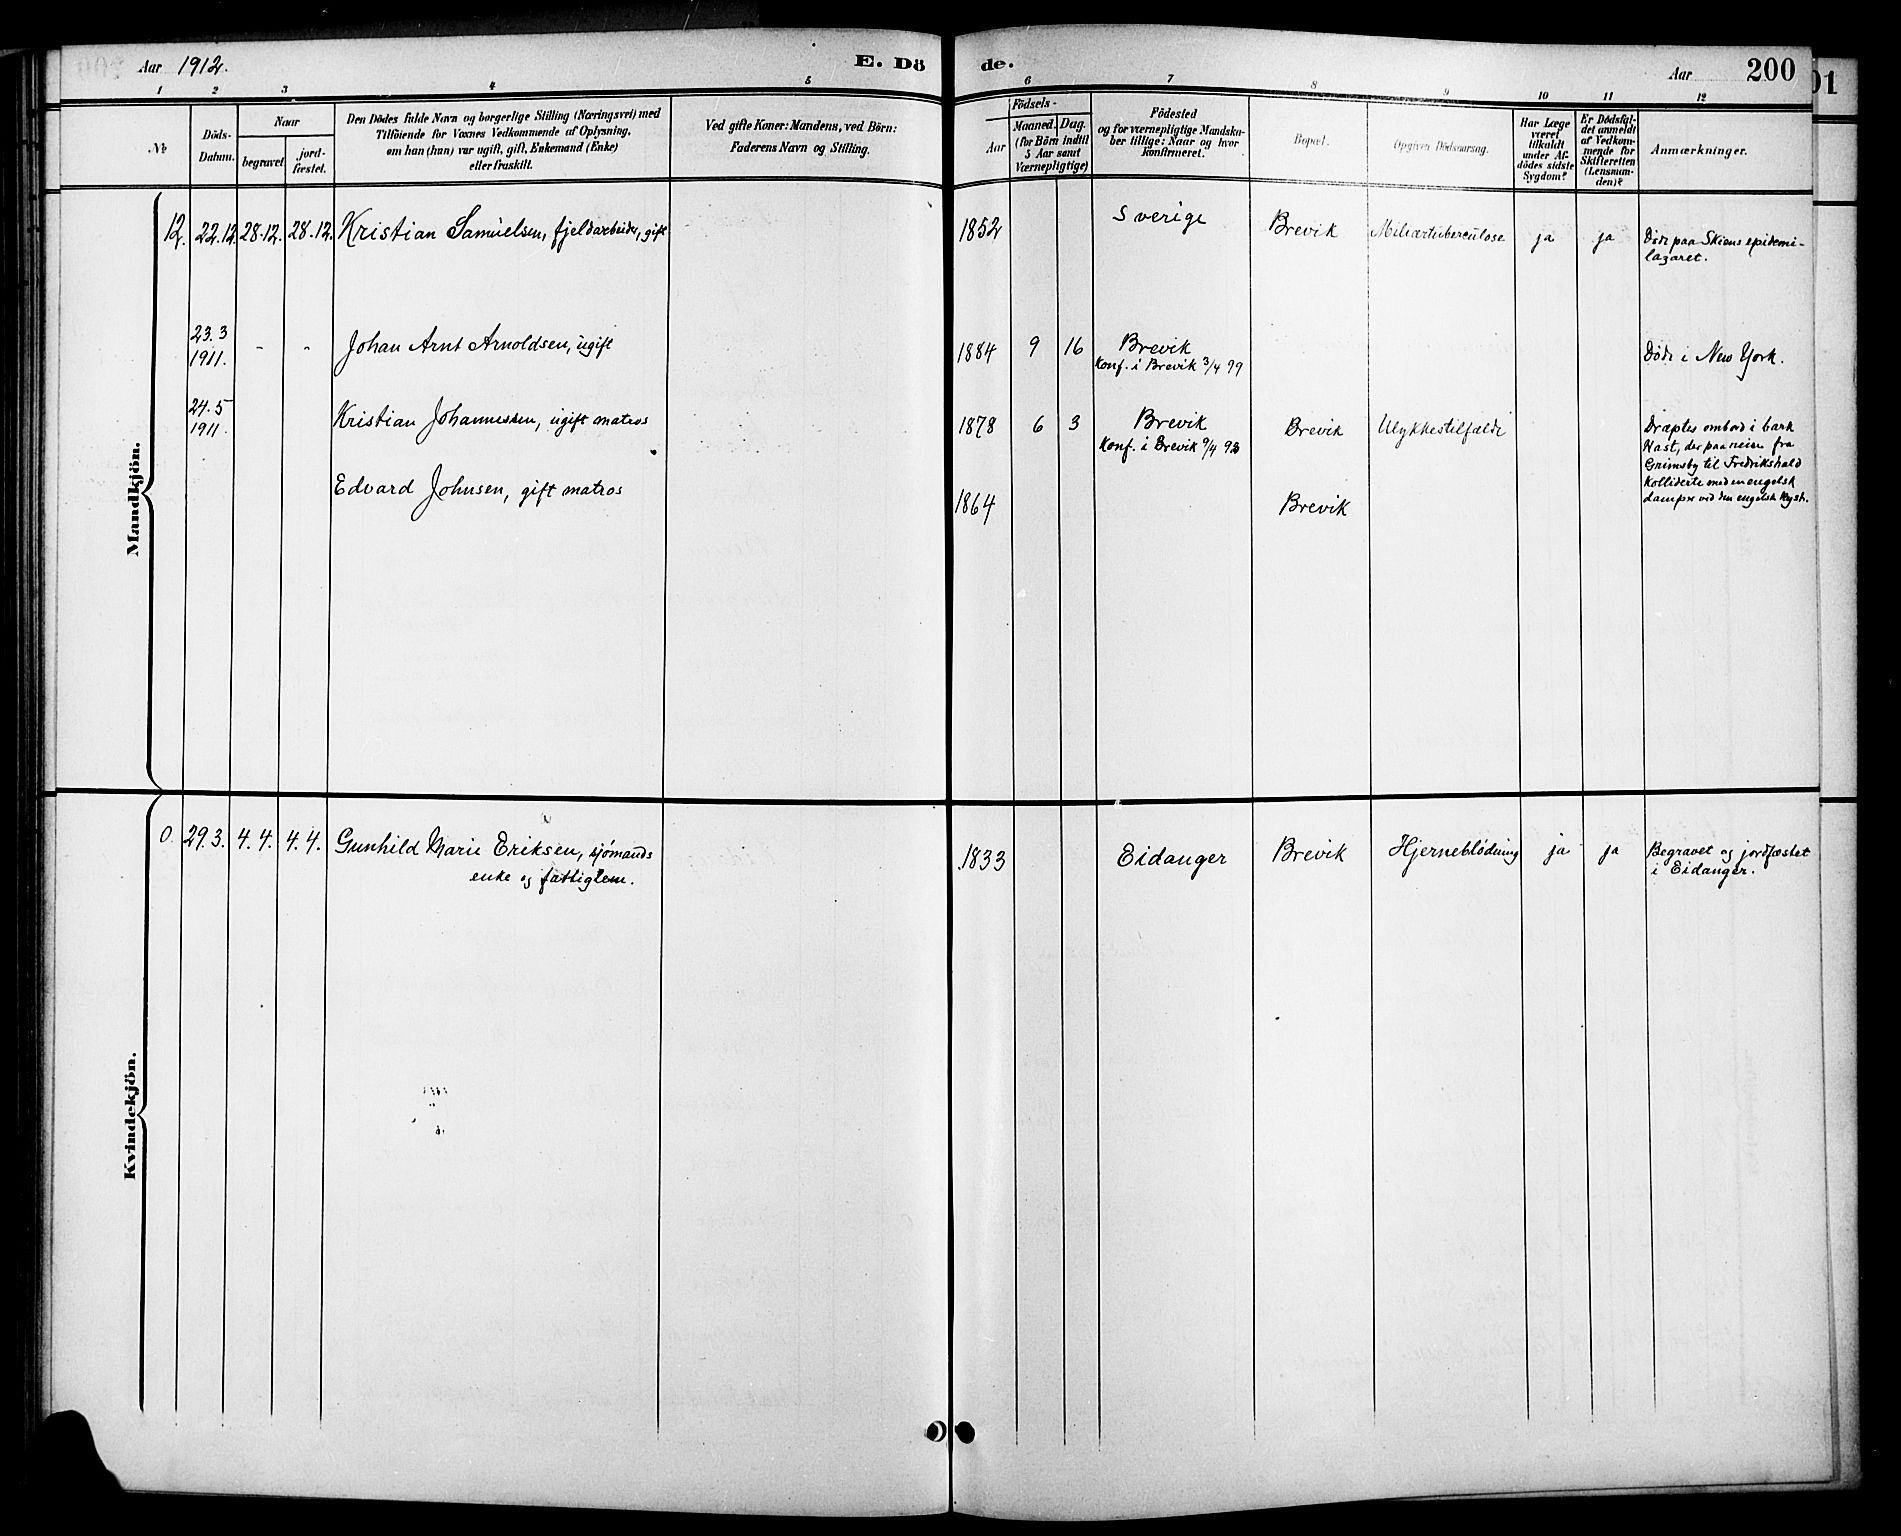 Aar 1912. E. Dö de. Aar 200
01
1 2 3 4 5 6 7 8 9 10 11 12
№
Döds-
Datum.
Naar
begravet
jord-
fæstet.
Den Dödes fulde Navn og borgerlige Stilling (Næringsvei) med
Tilföiende for Voxnes Vedkommende af Oplysning,
om han (hun) var ugift, gift, Enkemand (Enke)
eller fraskilt.
Ved gifte Koner: Mandens, ved Börn:
Faderens Navn og Stilling.
Födsels-
Aar
Maaned. Dag.
(for Börn indtil
5 Aar samt
Værnepligtige)
Födested
og for værnepligtige Mandska-
ber tillige: Naar og hvor
konfirmeret.
Bopæl.
Opgiven Dödsaarsag.
Har Læge
været
tilkaldt
under Af-
dödes sidste
Sygdom?
Er Dödsfal-
det anmeldt
af Vedkom-
mende for
Skifteretten
(Lensman-
den)?
Anmærkninger.
Mandkjön.
12. 22.12 28.12. 28.12. Kristian Samuelsen, fjeldarbeider, gift 1852 Sverige Brevik Miliærtuberculose ja ja Döde paa Skiens epidemi-
lazaret.
23.3
1911. - - Johan Arnt Arnoldsen, ugift 1884 9 16 Brevik
Konf. i Brevik 3/4 99 Döde i New York.
24.5
1911. Kristian Johannessen, ugift matros 1878 6 3 Brevik
Konf. i Brevik 9/4 93 Brevik Ulykkestilfælde Dræptes ombord i bark
Hast, der paa reise fra
Grimsby til Fredrikshald
kolliderte med en engelsk
damper ved den engelsk kyst.
Edvard Johnsen, gift matros 1864 Brevik
Kvindekjön.
0. 29.3. 4.4. 4.4. Gunhild Marie Eriksen, sjömands
enke og fattiglem. 1833 Eidanger Brevik Hjerneblödning ja ja Begravet og jordfæstet
i Eidanger.